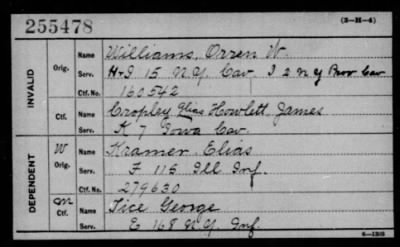 255478
(3-H-4)
INVALID
Orig.
Name Williams, Orren W.
Serv. H & I 15 N.Y. Cav. I 2 N Y Prov Cav
Ctf. No. 160542
Ctf.
Name Cropley alias Howlett, James
Serv. K 7 Iowa Cav.
DEPENDENT
W
Orig.
Name Kramer, Elias
Serv. F 115 Ill Inf.
Ctf. No. 279630
M
Ctf.
Name Tice George
Serv. E 168 N.Y. Inf